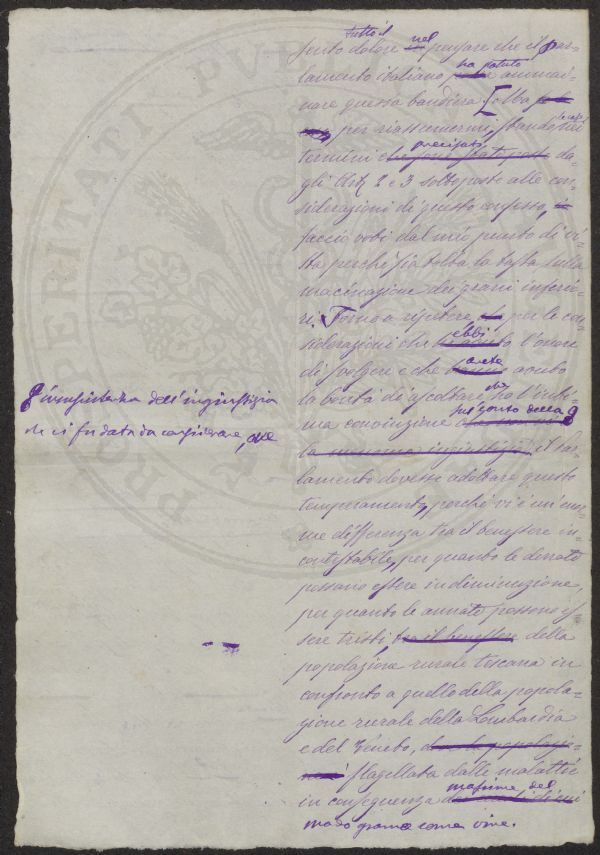 tutto il
sento dolore nel pensare che il par-
lamento italiano ha potuto ammai-
nare questa bandiera. [Olta
per riassumermi, stando nei
termini precisati da-
gli Art. 2 e 3 sottoposto alle con-
siderazioni di questo consesso, io
faccio voti dal mio punto di vi-
sta perché sia tolta la tassa sulla
macinazione dei grani inferio-
ri. Torno a ripetere, per le con-
siderazioni che ebbi l'onore
di svolgere e che avete avuto
la bontà di ascoltare, ho l'inti-
ma convinzione che
sul conto della
la massima ingiustizia il Par-
lamento dovesse adottare questo
temperamento, perché vi è un'enor-
me differenza tra il benessere in-
contestabile, per quanto le derrate
possano essere in diminuzione,
per quanto le annate possono es-
sere tristi, tra il benessere della
popolazione rurale toscana in
confronto a quello della popola-
zione rurale della Lombardia
e del Veneto, da la popolazio-
ne flagellata dalle malattie
in conseguenza massime del
modo grame come vive.
l'insussistenza dell'ingiustizia
che ci fu data da considerare, che
PROSPERITATI PUBLICAE